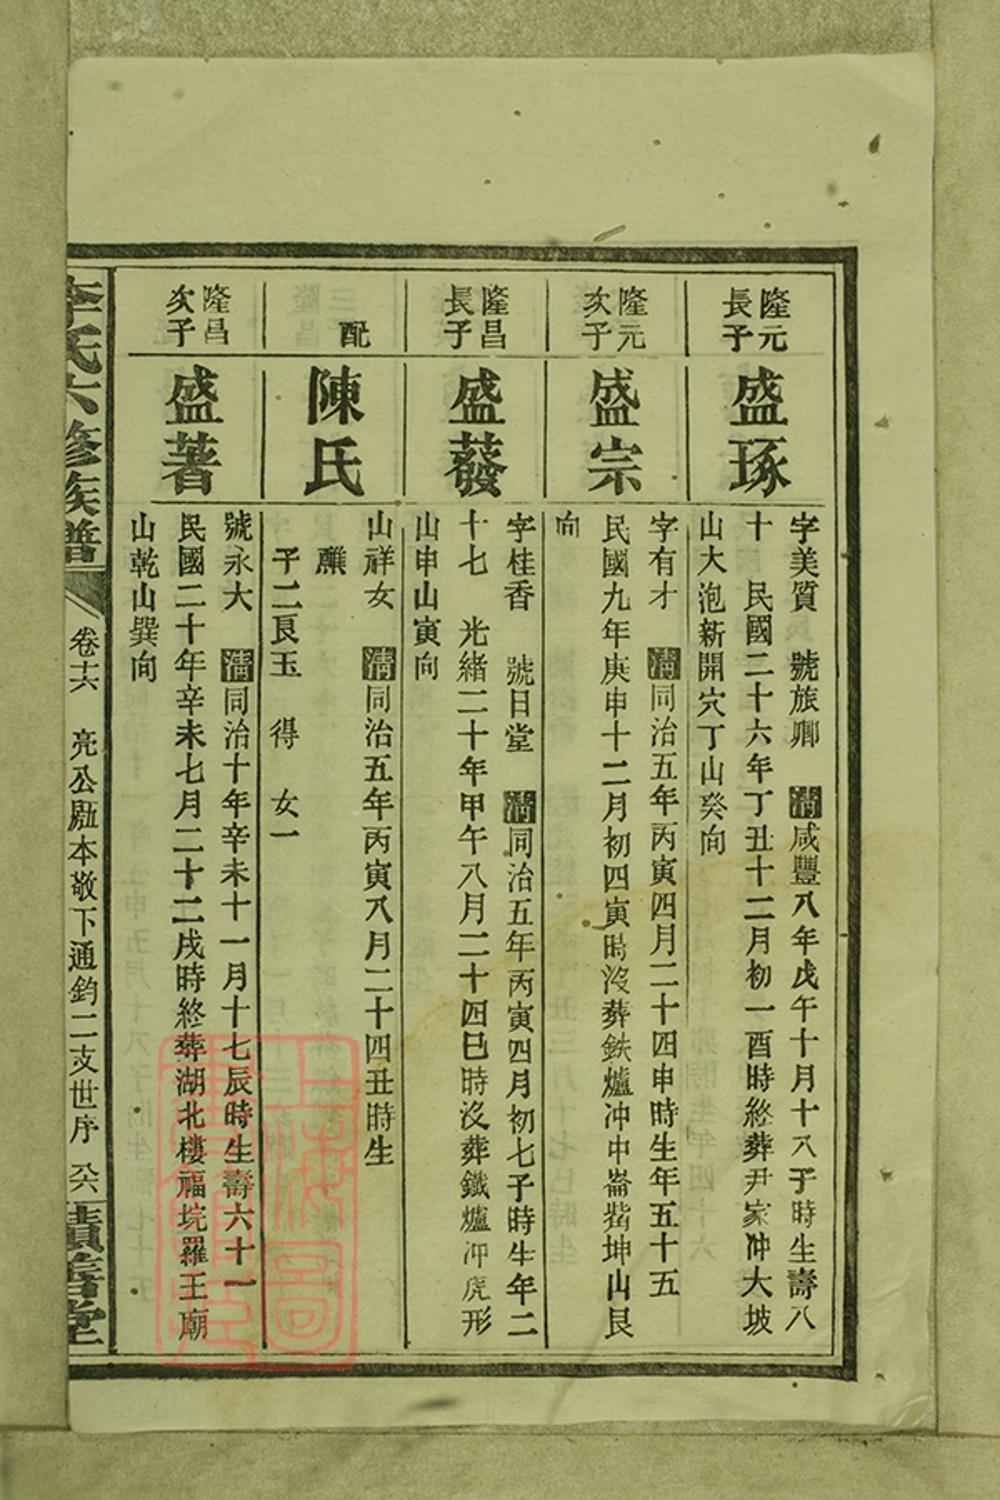 隆元
長子
盛琢
字美質　號旅卿　清咸豐八年戊午十月十八子時生壽八
十　民國二十六年丁丑十二月初一酉時終葬尹家冲大坡
山大泡新開穴丁山癸向
隆元
次子
盛宗
字有才　清同治五年丙寅四月二十四申時生年五十五
民國九年庚申十二月初四寅時沒葬鉄爐冲中崙嘴坤山艮
向
隆昌
長子
盛蕟
字桂香　號日堂　清同治五年丙寅四月初七子時生年二
十七　光緒二十年甲午八月二十四巳時沒葬鐵爐冲虎形
山申山寅向
配
陳氏
山祥女　清同治五年丙寅八月二十四丑時生
醮
子二良玉　得　女一
隆昌
次子
盛著
號永大　清同治十年辛未十一月十七辰時生壽六十一
民國二十年辛未七月二十二戌時終葬湖北樓福垸羅王廟
山乾山巽向
李氏六修族譜
卷十六　亮公廷本敬下通鈞二支世序　六六
積善堂
上海圖
書館藏